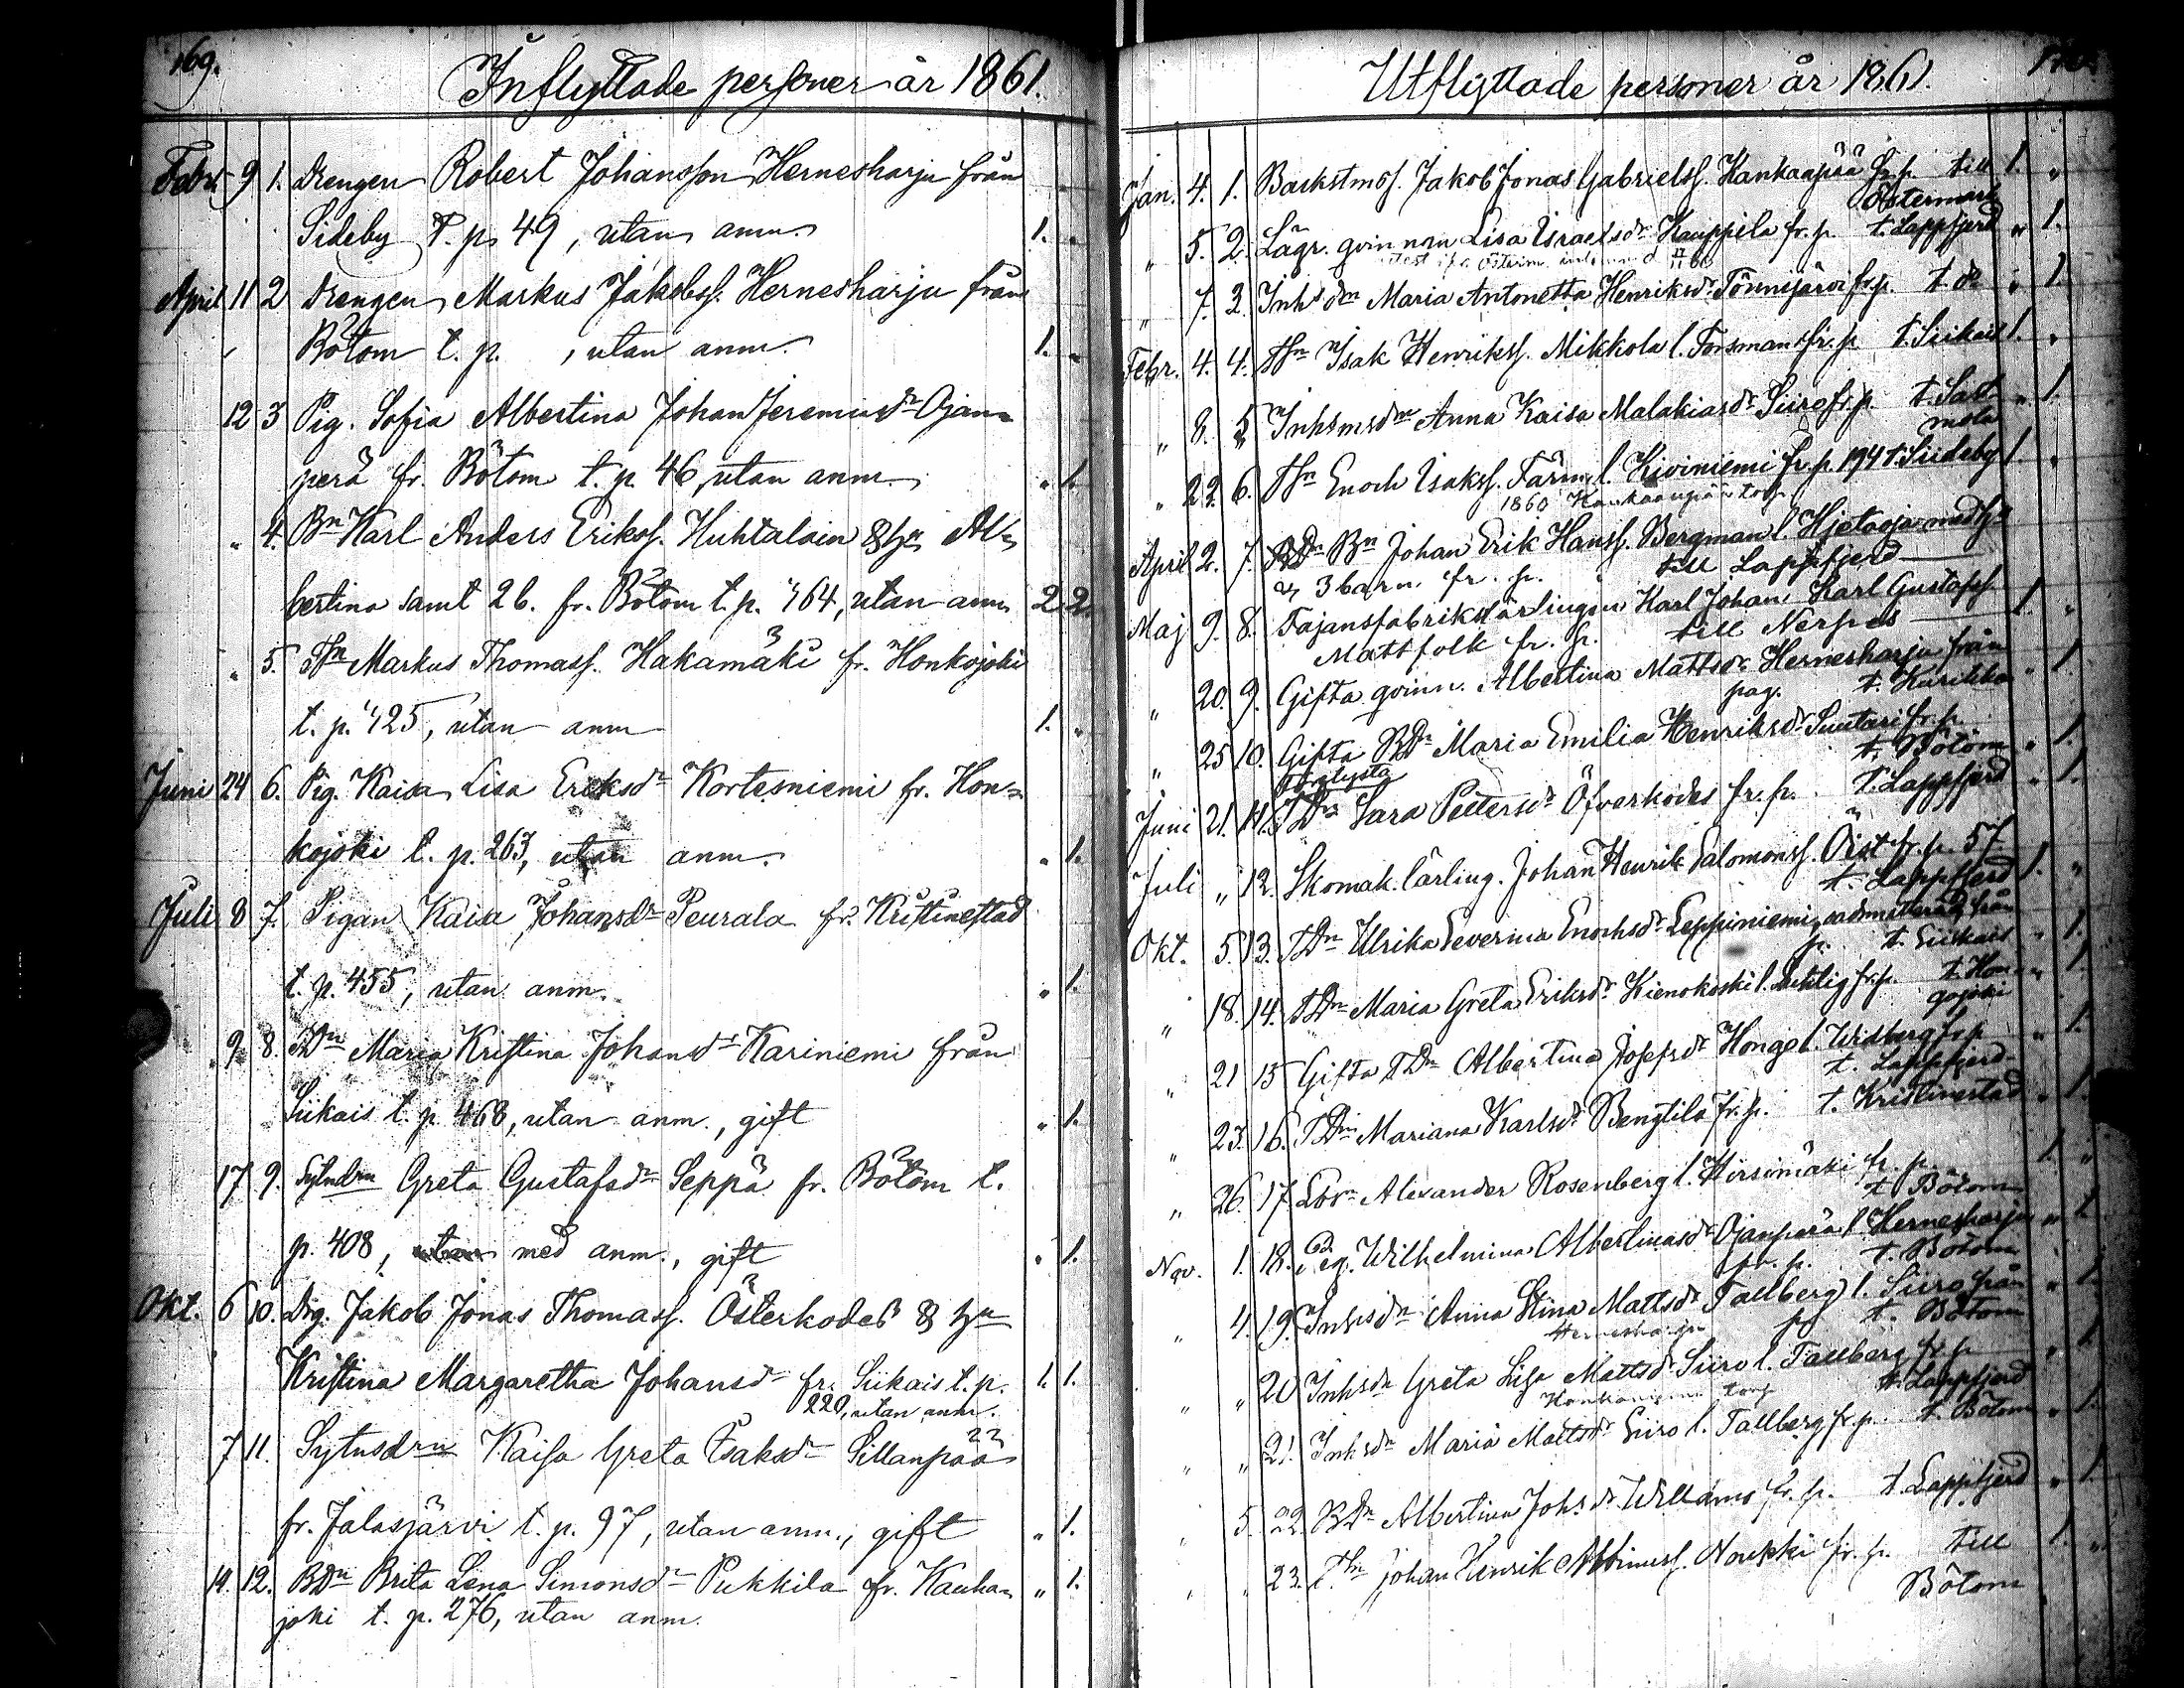 169.
Inflyttade personer år 1861.
Febr. 9 1. Drengen Robert Johansson Hernesharju från
Sideby t. p. 49, utan anm. 1. "
April 11 2 Drengen Markus Jakobss. Hernesharju från
Bötom t. p. , utan anm. 1. "
12 3 Pig. Sofia Albertina Johan Jeremiasdr Ojan=
perä fr. Bötom t. p. 46, utan anm. " 1.
" 4. Bn Karl Anders Erikss. Huhtalain & hu Al=
bertina samt 2 b. fr. Bötom t. p. 464, utan anm 2 2
" 5. Thn Markus Thomass. Hakamäki fr. Honkojoki
t. p. 425, utan anm 1. "
Juni 24 6. Pig. Kaisa Lisa Eriksdr Kortesniemi fr. Hon=
kojoki t. p. 263, utan anm. " 1.
Juli 8 7. Pigan Kaisa Johansdr Peurala fr. Kristinestad
t. p. 455, utan anm. " 1.
" 9. 8. Dn Maria Kristina Johansdr Kariniemi från
Siikais t. p. 468, utan anm., gift " 1.
17 9. Greta Gustafsdr Seppä fr. Bötom t.
p. 408, utan med anm., gift " 1.
Okt. 6 10. Drg. Jakob Jonas Thomass. Österkodes & hu
Kristina Margaretha Johansdr fr. Siikais t. p. 1. 1.
220, utan anm.
7 11. Sytnsdrn Kaisa Greta Isaksdr Sillanpää
fr. Jalasjärvi t. p. 97, utan anm., gift " 1.
14. 12. BDn Brita Lena Simonsdr Pukkila fr. Kauha= " 1.
joki t. p. 276, utan anm.
Utflyttade personer år 1861.
Jan. 4. 1. Backstmos. Jakob Jonas Gabrielss. Kankaapää fr. p. till 1. "
Östermark
" 5. 2. Lägr. qvinnan Lisa Israelsdr Kauppila fr. p. t. Lappfjerd " 1.
" 7. 3. Inhsdn Maria Antonetta Henriksdr Tönnisjärvi fr. p. t. do " 1.
Febr. 4. 4. Thn Isak Henrikss. Mikkola l. Forsman fr. p. t. Siikais 1. "
" 8. 5 Inhsmsdn Anna Kaisa Malakiasdr Siiro fr. p. t. Sast= " 1.
mola
" 22. 6. Thn Enoch Isakss. Färm l. Kiviniemi fr. p. 194 t. Siideby 1. "
1860 Kankaanpään torp
April 2. 7. Bn Johan Erik Hanss. Bergman l. Hjetaoja med h.
& 3 barn fr. p. till Lappfjerd
Maj 9. 8. Fajansfabrikslärlingen Karl Johan Karl Gustafss. 1. "
Mattfolk fr. p. till Nerpes
" 20. 9. Gifta qvinn. Albertina Mattsdr Hernesharju från
pag. t. Kurikka " 1.
" 25 10. Gifta BDn Maria Emilia Henriksdr Suutari fr. p.
t. Bötom " 1.
Juni 21. 11. TDn Sara Pettersdr Öfverkodes fr. p. t. Lappfjerd " 1.
Juli " 12. Skomak. lärling. Johan Henrik Salomonss. Öist fr. p. 57
t. Lappfjerd 1. "
Okt. 5. 13. TDn Ulrika Severina Enochsdr Leppiniemi från
p. t. Siikais " 1.
" 18. 14. TDn Maria Greta Eriksdr Kienokoski fr. p. t. Hon= " 1.
gojoki
" 21 15 Gifta TDn Albertina Josefsdr Hongo l. Widberg fr. p. " 1.
t. Lappfjerd
" 23. 16. TDn Mariana Karlsdr Bengtila fr. p. t. Kristinestad " 1.
" 26. 17. Alexander Rosenberg l. Hirsimäki fr. p. 1. "
t. Bötom
Nov. 1. 18. Pig. Wilhelmina Albertinasdr Ojanperä l. Hernesharju " 1.
fr. p. t. Bötom
" 4. 19. Inhsdn Anna Stina Mattsdr Tallberg l. Siiro från " 1.
Hernesharju p. t. Bötom
" " 20 Inhsdn Greta Lisa Mattsdr Siiro l. Tallberg fr. p. " 1.
t. Lappfjerd
" " 21. Inhsdn Maria Mattsdr Siiro l. Tallberg fr. p. t. Bötom " 1.
" 5. 22. BDn Albertina Johsdr Willams fr. p. t. Lappfjerd " 1.
" " 23. Thn Johan Henrik Noukki fr. p. till 1. "
Bötom